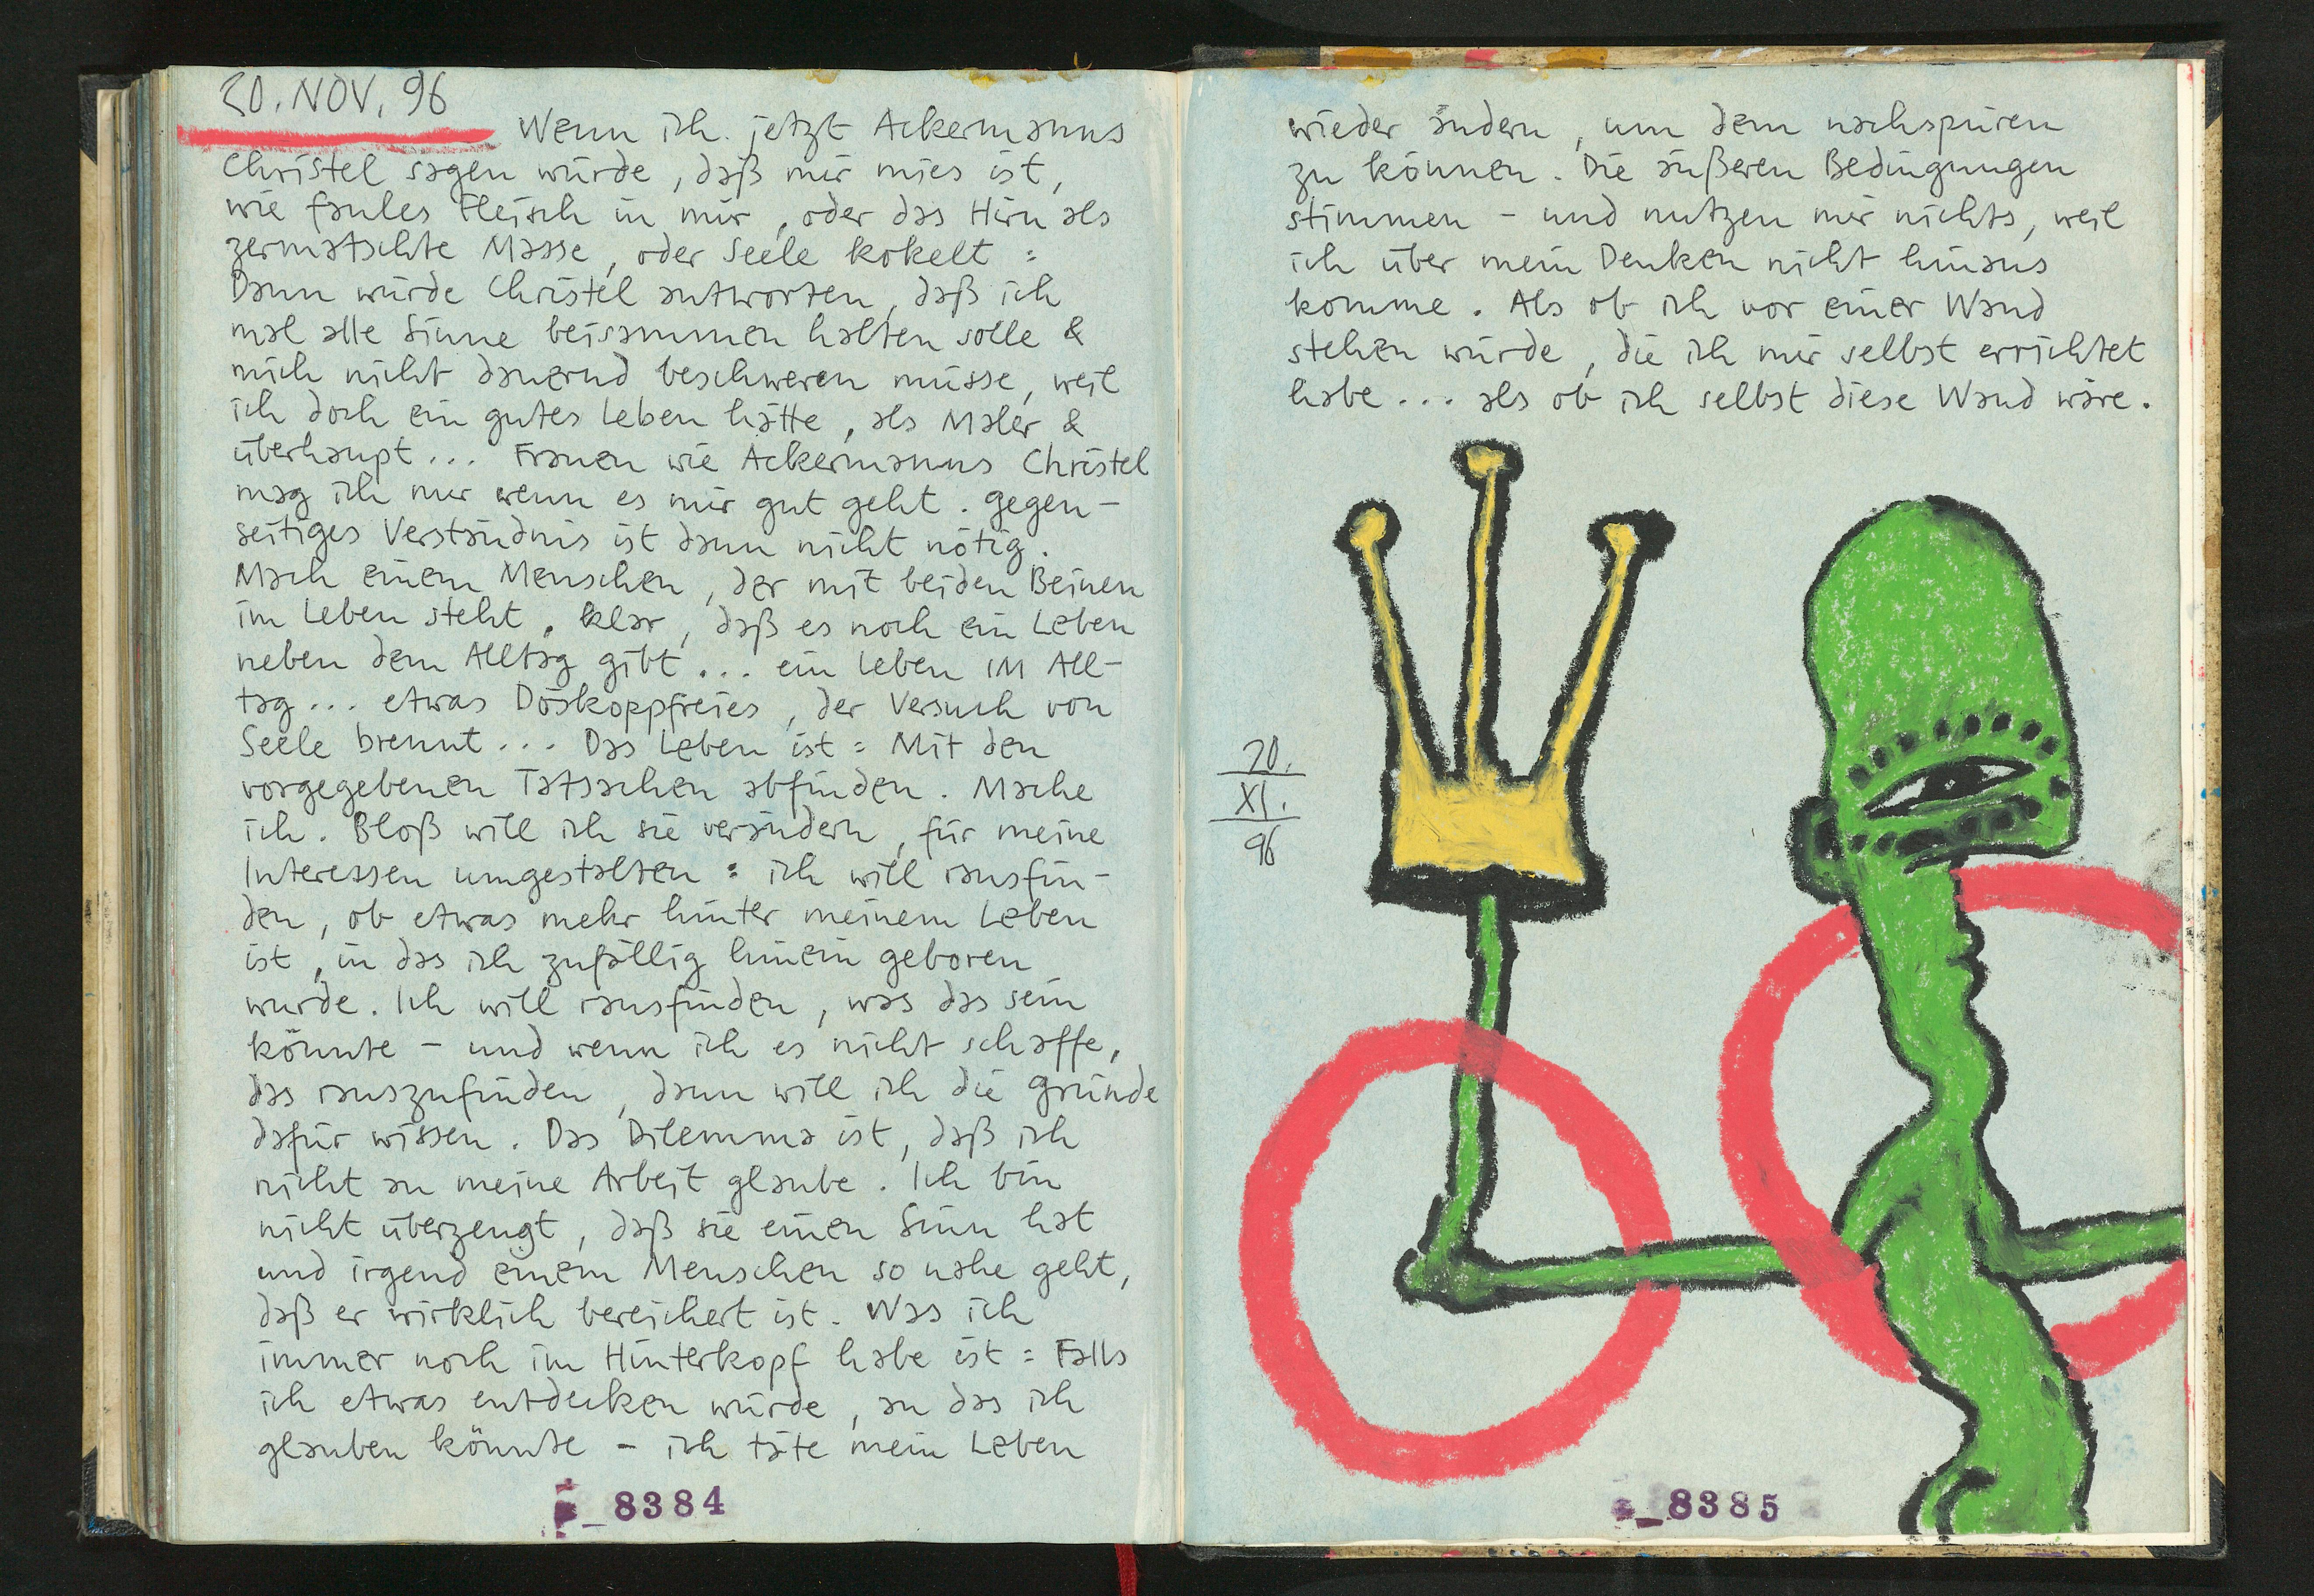 20. NOV. 96
Wenn ich jetzt Ackermanns
Christel sagen würde, daß mir mies ist,
wie faules Fleisch in mir, oder das Hirn als
zermatschte Masse, oder Seele kokelt :
Dann würde Christel antworten, daß ich
mal alle Sinne beisammen halten solle &
mich nicht dauernd beschweren müsse, weil
ich doch ein gutes Leben hätte, als Maler &
überhaupt... Frauen wie Ackermanns Christel
mag ich nur wenn es mir gut geht. Gegen-
seitiges Verständnis ist dann nicht nötig.
Mach einem Menschen, der mit beiden Beinen
im Leben steht, klar, daß es noch ein Leben
neben dem Alltag gibt... ein Leben IM All-
tag... etwas Döskoppfreies, der Versuch von
Seele brennt... Das Leben ist : Mit den
vorgegebenen Tatsachen abfinden. Mache
ich. Bloß will ich sie verändern, für meine
Interessen umgestalten : ich will rausfin-
den, ob etwas mehr hinter meinem Leben
ist, in das ich zufällig hinein geboren
wurde. Ich will rausfinden, was das sein
könnte - und wenn ich es nicht schaffe,
das rauszufinden, dann will ich die Gründe
dafür wissen. Das Dilemma ist, daß ich
nicht an meine Arbeit glaube. Ich bin
nicht überzeugt, daß sie einen Sinn hat
und irgend einem Menschen so nahe geht,
daß er wirklich bereichert ist. Was ich
immer noch im Hinterkopf habe ist : Falls
ich etwas entdecken würde, an das ich
glauben könnte - ich täte mein Leben
8384
wieder ändern, um dem nachspüren
zu können. Die äußeren Bedingungen
stimmen - und nutzen mir nichts, weil
ich über mein Denken nicht hinaus
komme. Als ob ich vor einer Wand
stehen würde, die ich mir selbst errichtet
habe... als ob ich selbst diese Wand wäre.
20.
XI.
96
8385